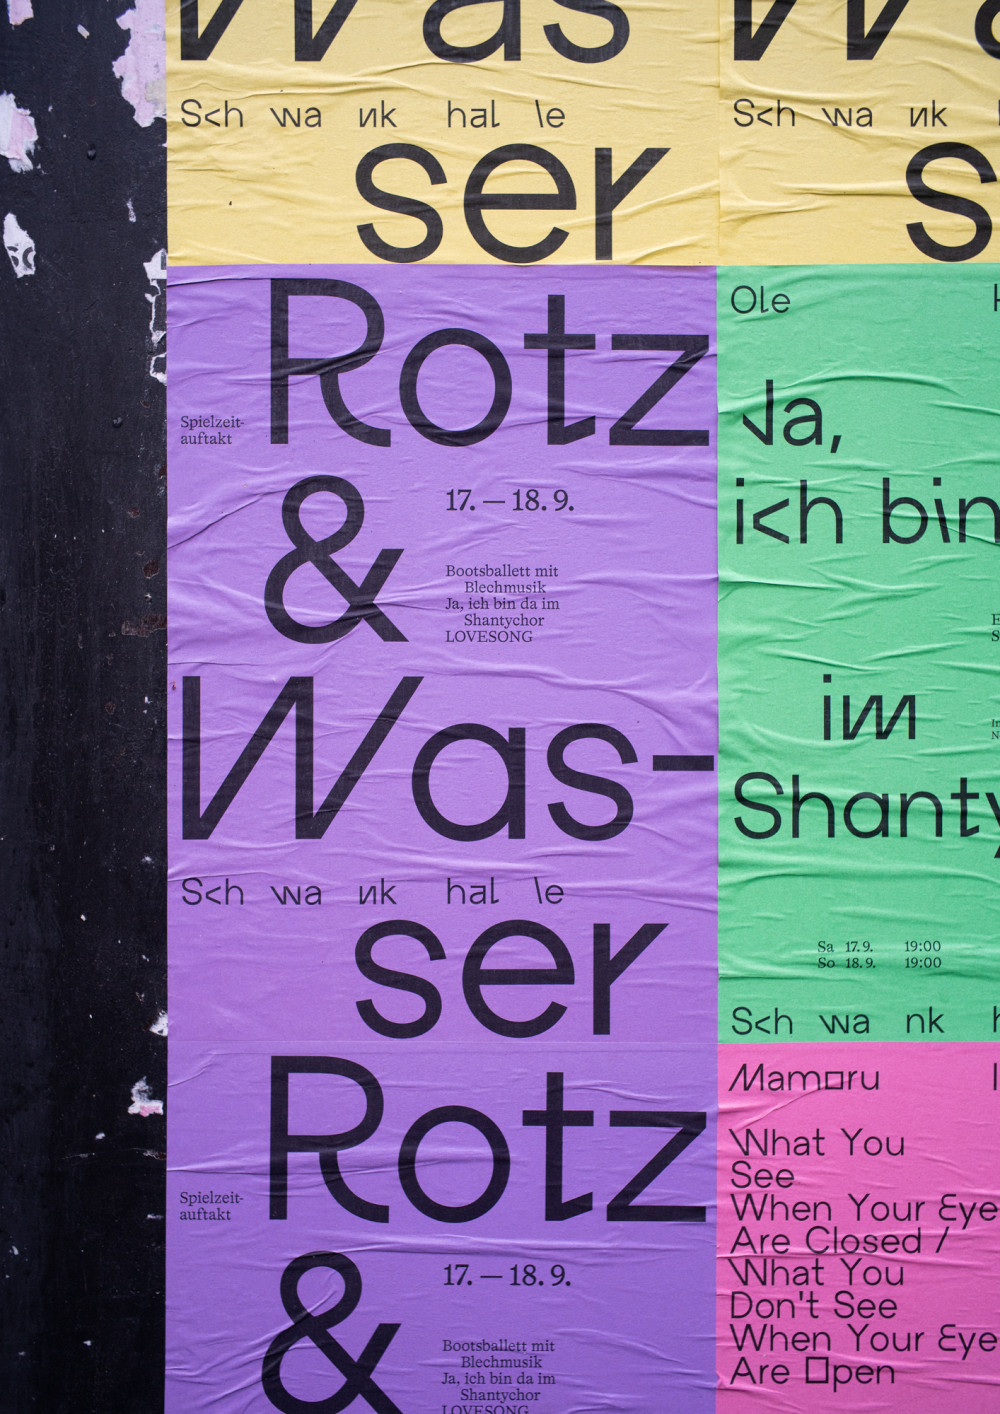 Was
Sch wa nk hal le
ser
Sch wa nk
Rotz
Spielzeit-
auftakt
&
17. — 18. 9.
Bootsballett mit
Blechmusik
Ja, ich bin da im
Shantychor
LOVESONG
Was-
Sch wa nk hal le
ser
Ole
Ja,
ich bin
im
Shanty
Sa 17. 9. 19:00
So 18. 9. 19:00
Sch wa nk
Rotz
Spielzeit-
auftakt
&
17. — 18. 9.
Bootsballett mit
Blechmusik
Ja, ich bin da im
Shantychor
LOVESONG
Mamoru
What You
See
When Your Eye
Are Closed /
What You
Don't See
When Your Eye
Are Open